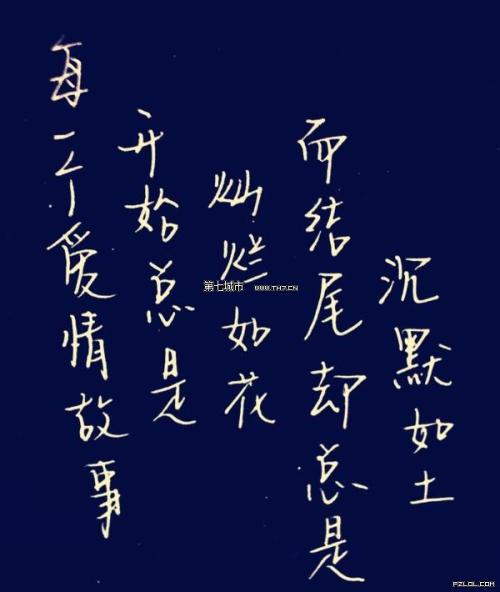 每一个爱情故事
开始总是
灿烂如花
而结尾却总是
沉默如土
第七城市 WWW.TH7.CN
PZLOL.COM